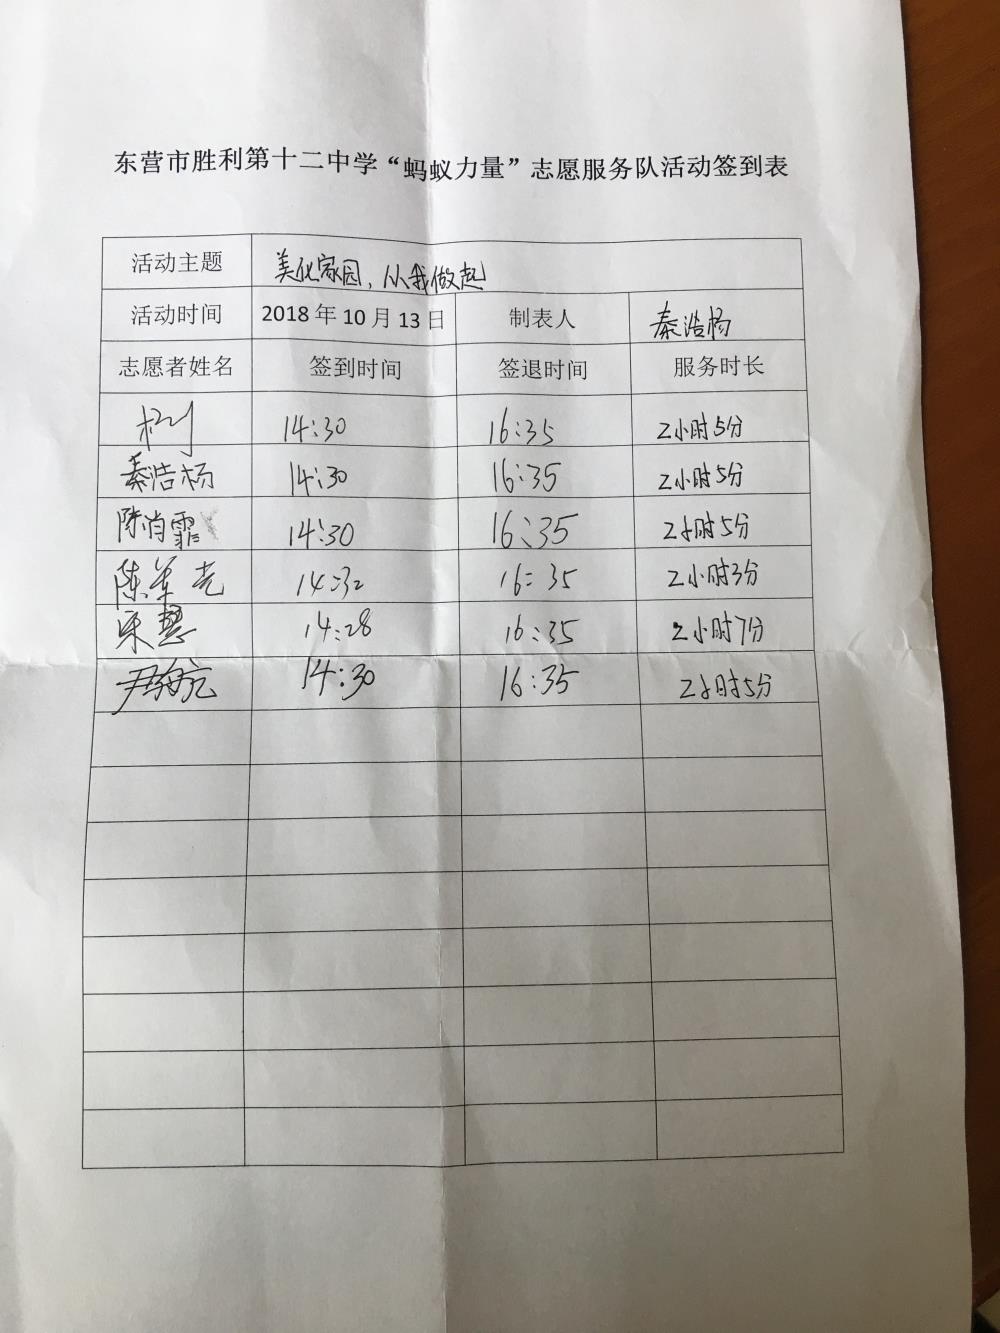 东营市胜利第十二中学“蚂蚁力量”志愿服务队活动签到表
活动主题 美化家园，从我做起
活动时间 2018年10月13日 制表人 秦浩杨
志愿者姓名 签到时间 签退时间 服务时长
14:30 16:35 2小时5分
秦浩杨 14:30 16:35 2小时5分
陈肖霏 14:30 16:35 2小时5分
陈 14:32 16:35 2小时3分
宋慧 14:28 16:35 2小时7分
尹海航 14:30 16:35 2小时5分